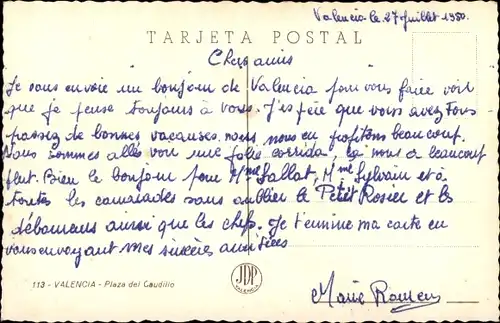 Valencia le 27 Juillet 1950.
TARJETA POSTAL
Chers amis
Je vous envoie un bonjour de Valencia pour vous faire voir
que je pense toujours à vous. J'espère que vous avez tous
passez de bonnes vacances. nous nous en profitons beaucoup.
Nous sommes allés voir une jolie corrida, ça nous a beaucoup
plut. Bien le bonjour pour Mme Lallat, Mme Sylvain et à
toutes les camarades sans oublier le Petit Rosier et les
débourreurs ainsi que les chefs. Je termine ma carte en
vous envoyant mes sincères amitiées
113 - VALENCIA - Plaza del Caudillo
JDP
VALENCIA
Marie